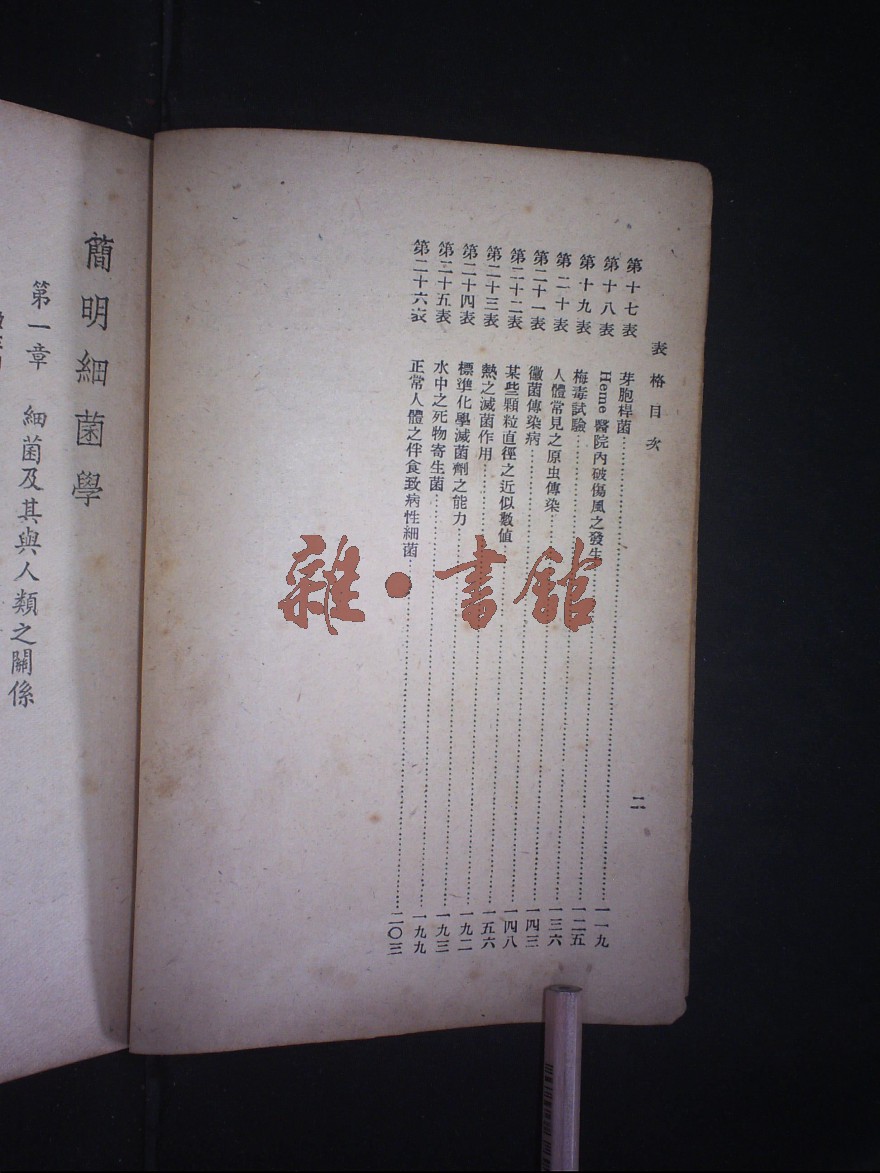 表格目次 二
第十七表 芽胞桿菌……一一九
第十八表 Heme 醫院內破傷風之發生……一二五
第十九表 梅毒試驗……一三六
第二十表 人體常見之原虫傳染……一四三
第二十一表 黴菌傳染病……一四八
第二十二表 某些顆粒直徑之近似數值……一五六
第二十三表 熱之滅菌作用……一九二
第二十四表 標準化學滅菌劑之能力……一九三
第二十五表 水中之死物寄生菌……一九九
第二十六表 正常人體之伴食致病性細菌……二〇三
簡明細菌學
第一章 細菌及其與人類之關係
雜·書館